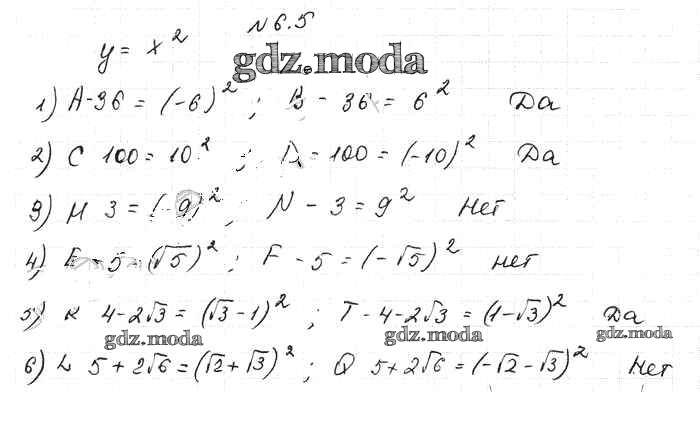 N 6.5
y = x²
gdz.moda
1) A - 36 = (-6)² ; B - 36 = 6² Да
2) C 100 = 10² ; D - 100 = (-10)² Да
3) M 3 = (-9)² ; N - 3 = 9² Нет
4) E - 5 = (√5)² ; F - 5 = (-√5)² нет
5) K 4-2√3 = (√3-1)² ; T - 4-2√3 = (1-√3)² Да
gdz.moda gdz.moda gdz.moda
6) L 5+2√6 = (√2+√3)² ; Q 5+2√6 = (-√2-√3)² Нет